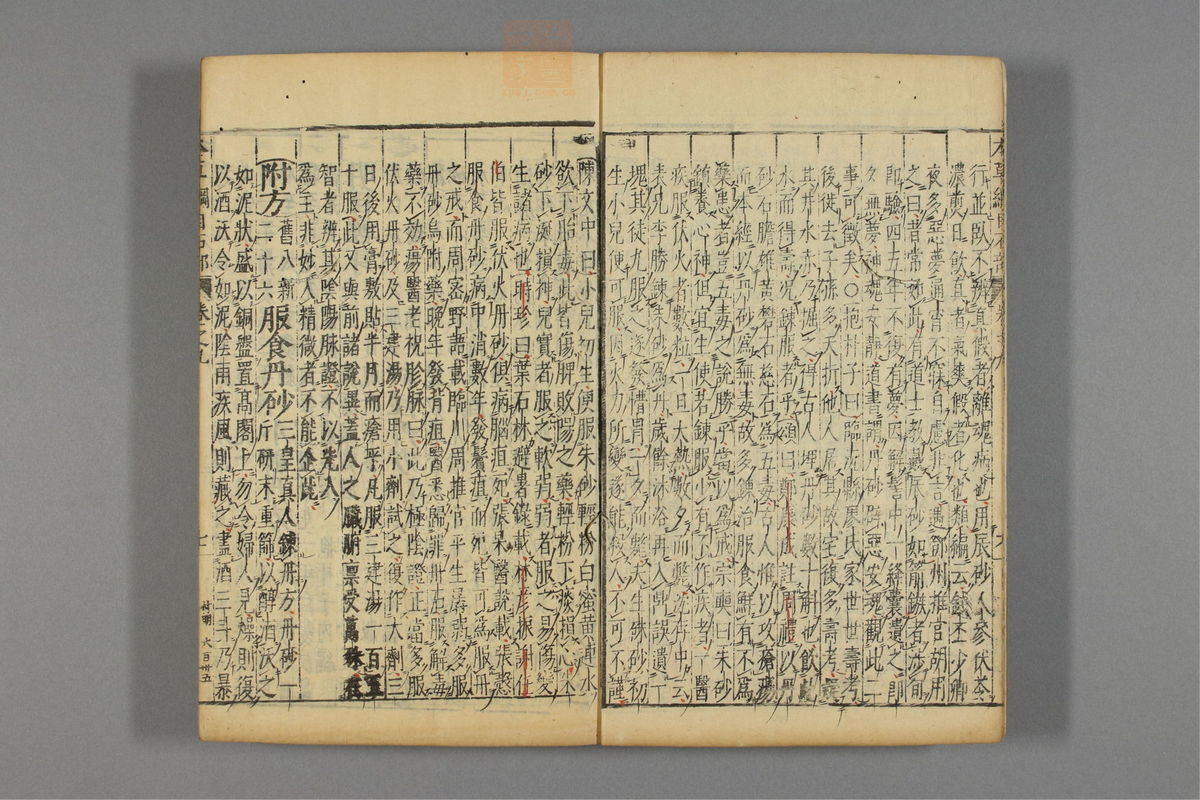 行並臥不辨真假者離魂病也用辰砂人參伏苓
濃煎日飲真者氣爽假者化也類編云錢丕少卿
夜多惡夢通宵不寐自慮非吉遇鄧州推官胡用
之曰昔常如此有道士教戴辰砂如箭鏃者涉旬
即驗四五年不復有夢因解髻中一絳囊遺之即
夕無夢神魂安靜道書謂丹砂辟惡安魂觀此二
事可徵矣○抱朴子曰臨沅縣廖氏家世世壽考
後徙去子孫多夭折他人居其故宅復多壽考
其井水赤乃掘之得古人埋丹砂數十斛也飲此
水而得壽況鍊服者乎頌曰鄭康成註周禮以丹
砂石膽雄黃礬石慈石為五毒古人惟以攻瘡瘍
而本經以丹砂為無毒故多鍊治服食鮮有不為
藥患者豈五毒之說勝乎當以為戒宗奭曰朱砂
鎮養心神但宜生使若鍊服少有不作疾者一醫
疾服伏火者數粒一旦大熱數夕而斃沈存中云
表兄李勝鍊朱砂為丹歲餘沐浴再入鼎誤遺一
塊其徒丸服之遂發懵冒一夕而斃夫生朱砂初
生小兒便可服因火力所變遂能殺人不可不謹
陳文中曰小兒初生便服朱砂輕粉白蜜黃連水
欲下胎毒此皆傷脾敗陽之藥輕粉下痰損心朱
砂下涎損神兒實者服之軟弱弱者服之易傷變
生諸病也時珍曰葉石林避暑錄載林彥振謝任
伯皆服伏火丹砂俱病腦疽死張杲醫說載張慤
服食丹砂病中消數年發鬢疽而死皆可為服丹
之戒而周密野語載臨川周推官平生孱弱多服
丹砂烏附藥晚年發背疽醫悉歸罪丹石服解毒
藥不効瘍醫老祝胗脉曰此乃極陰證正當多服
伏火丹砂及三建湯乃用小劑試之復作大劑三
日後用膏敷貼半月而瘡平凡服三建湯一百五
十服此又與前諸說異蓋人之臟腑稟受萬殊在
智者辨其陰陽脉證不以先入
為主非妙入精微者不能企此
附方舊八新二十六服食丹砂三皇真人鍊丹方丹砂一
斤研末重篩以醇酒沃之
如泥狀盛以銅盤置高閣上勿令婦人見燥則復
以酒沃令如泥陰雨疾風則藏之盡酒三斗乃暴